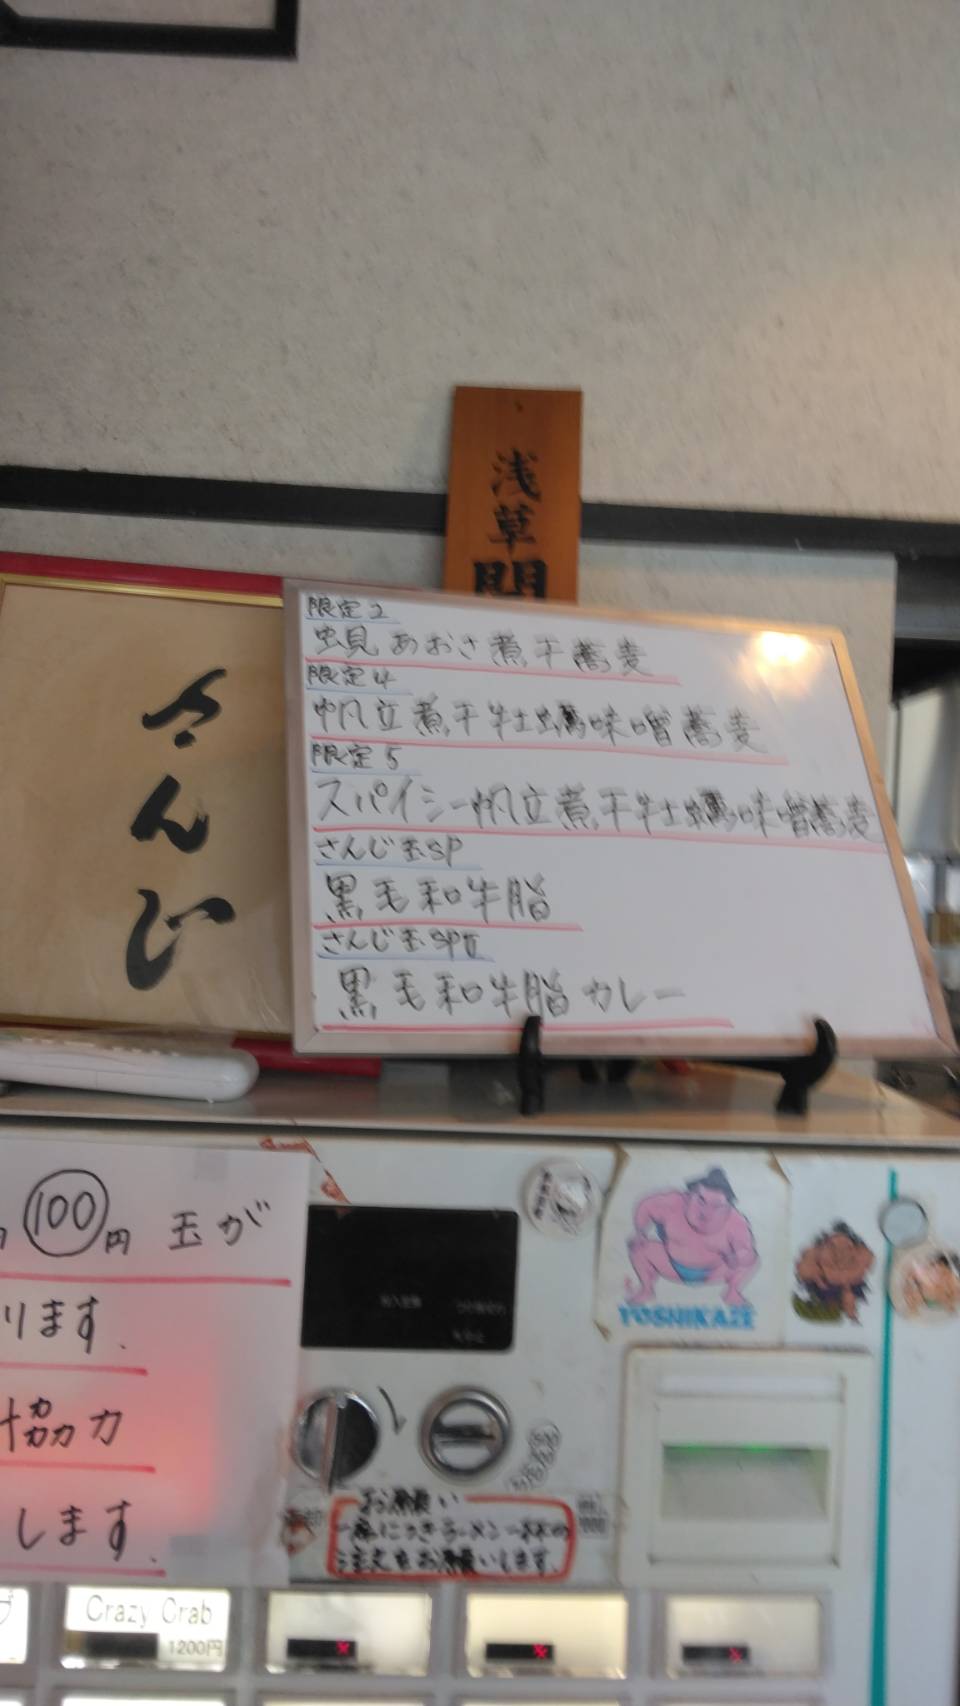 浅草開
さんじ
限定2
蜆あおさ煮干蕎麦
限定4
帆立煮干牡蠣味噌蕎麦
限定5
スパイシー帆立煮干牡蠣味噌蕎麦
さんじ玉SP
黒毛和牛脂
さんじ玉SPⅡ
黒毛和牛脂カレー
100円 玉が
ります.
協力
します.
YOSHIKAZE
お願い
一席につきラーメン一杯の
注文をお願いします.
Crazy Crab
1200円